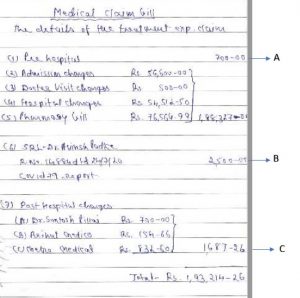 Medical Claim Bill
The details of the treatment exp. claim
(1) Pre hospital 700-00 A
(2) Admission charges Rs 56,600-00
(3) Doctor Visit charges Rs 500-00
(4) Hospital charges Rs 54,512-50
(5) Pharmacy Bill Rs. 76,564-99 1,88,327-00
(6) SRL-Dr. Avinash Phadke 2,500-00 B
Covid 19 - Report
(7) Post hospital charges
(A) Dr. Santosh Pillai Rs. 700-00
(B) Arihat Medico Rs. 154-66
(C) Medical Rs. 832-60 1687-26 C
Total - Rs. 1,93,214-26